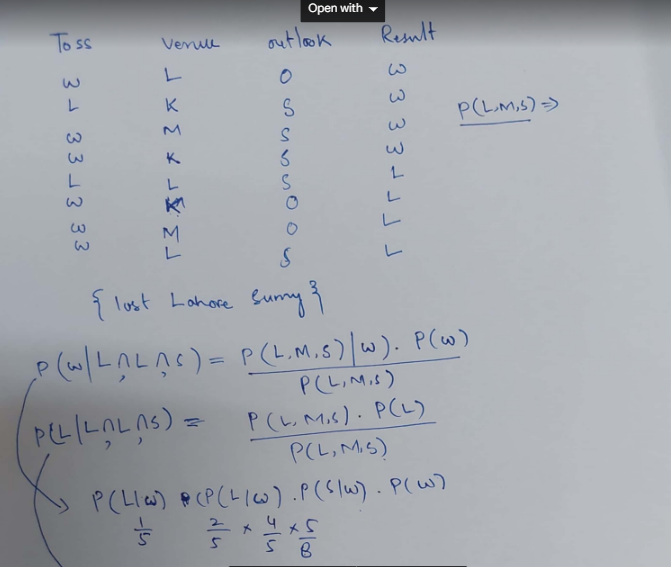 Open with
Toss Venue outlook Result
W L O W
L K S W
W M S W
W K S W
L L S L
W K O L
W M O L
W L S L
P(L,M,S) ⇒
{ lost Lahore Sunny }
P(W/L∩L∩S) = P(L,M,S)|W). P(W)
P(L,M,S)
P(L/L∩L∩S) = P(L,M,S). P(L)
P(L,M,S)
P(L|W) (P(L/W). P(S|W). P(W)
1/5 2/5 × 4/5 × 5/8